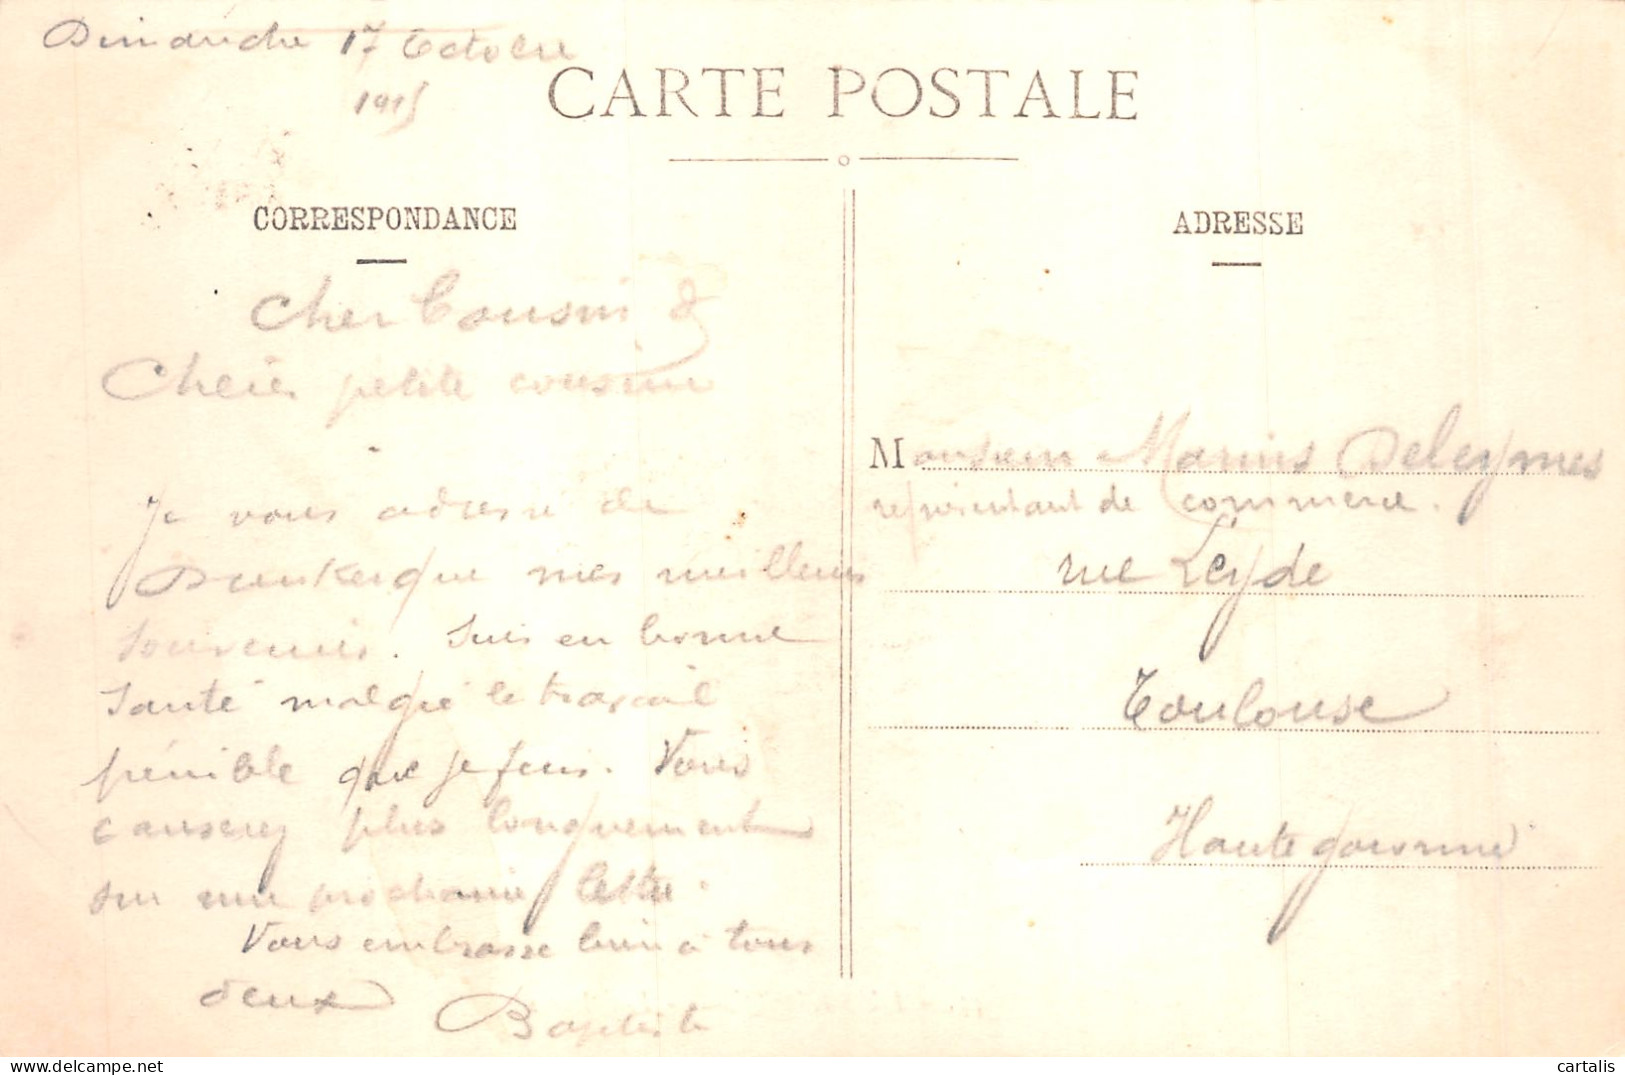 Dimanche 17 Octobre
1915
CARTE POSTALE
CORRESPONDANCE
Cher Cousin &
Chère petite cousine
Je vous adresse de
Dunkerque mes meilleurs
souvenirs. Suis en bonne
santé malgré le travail
pénible que je fais. Vous
causerez plus longuement
sur une prochaine lettre.
Vous embrasse bien à tous
deux
Baptiste
ADRESSE
Monsieur Marius Deleymes
représentant de commerce.
rue Leyde
Toulouse
Haute garonne
cartalis